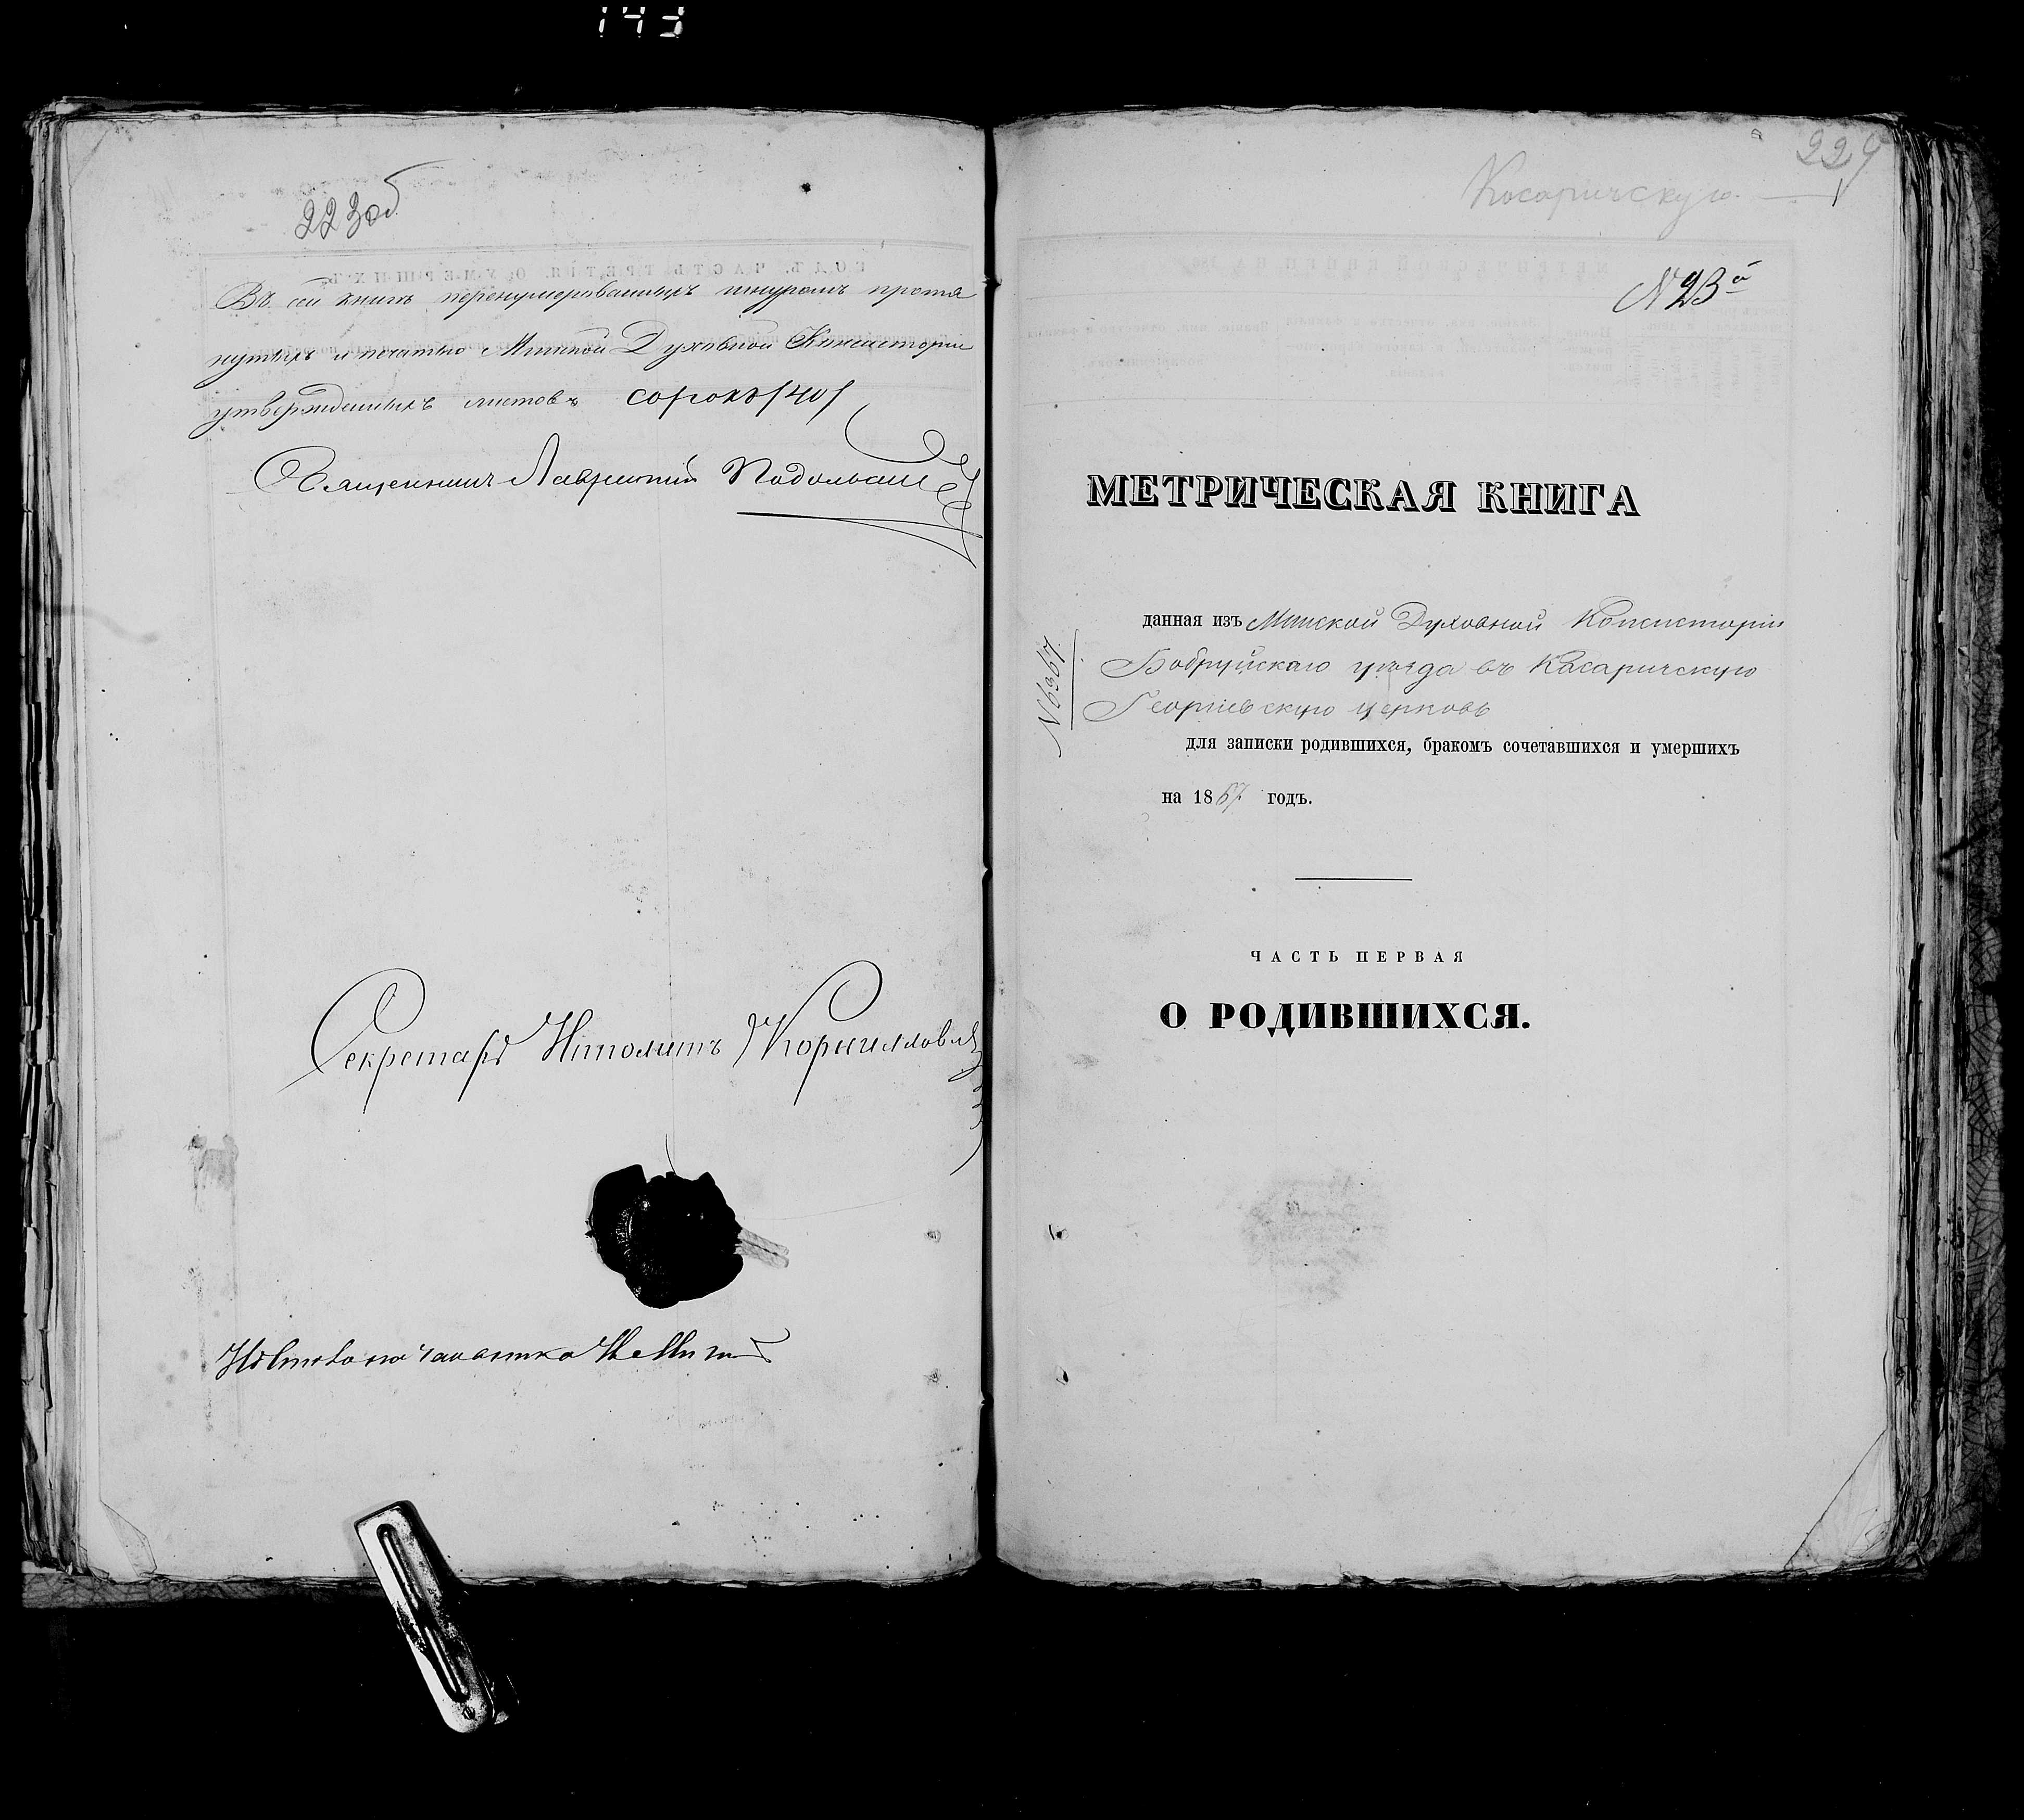 143
223об
Въ сей книгѣ перенумерованныхъ шнуромъ протя
нутыхъ и печатью Минской Духовной Консисторіи
утвержденныхъ листовъ сорокъ /40/
Священникъ Лаврентій Подольскій
Секретарь Ипполитъ Корнилович
224
Косаричскую
N 23й
МЕТРИЧЕСКАЯ КНИГА
данная изъ Минской Духовной Консисторіи
Бобруйскаго уѣзда въ Касаричскую
Георгіевскую церковь
N 6367.
для записки родившихся, бракомъ сочетавшихся и умершихъ
на 1867 годъ.
ЧАСТЬ ПЕРВАЯ
О РОДИВШИХСЯ.